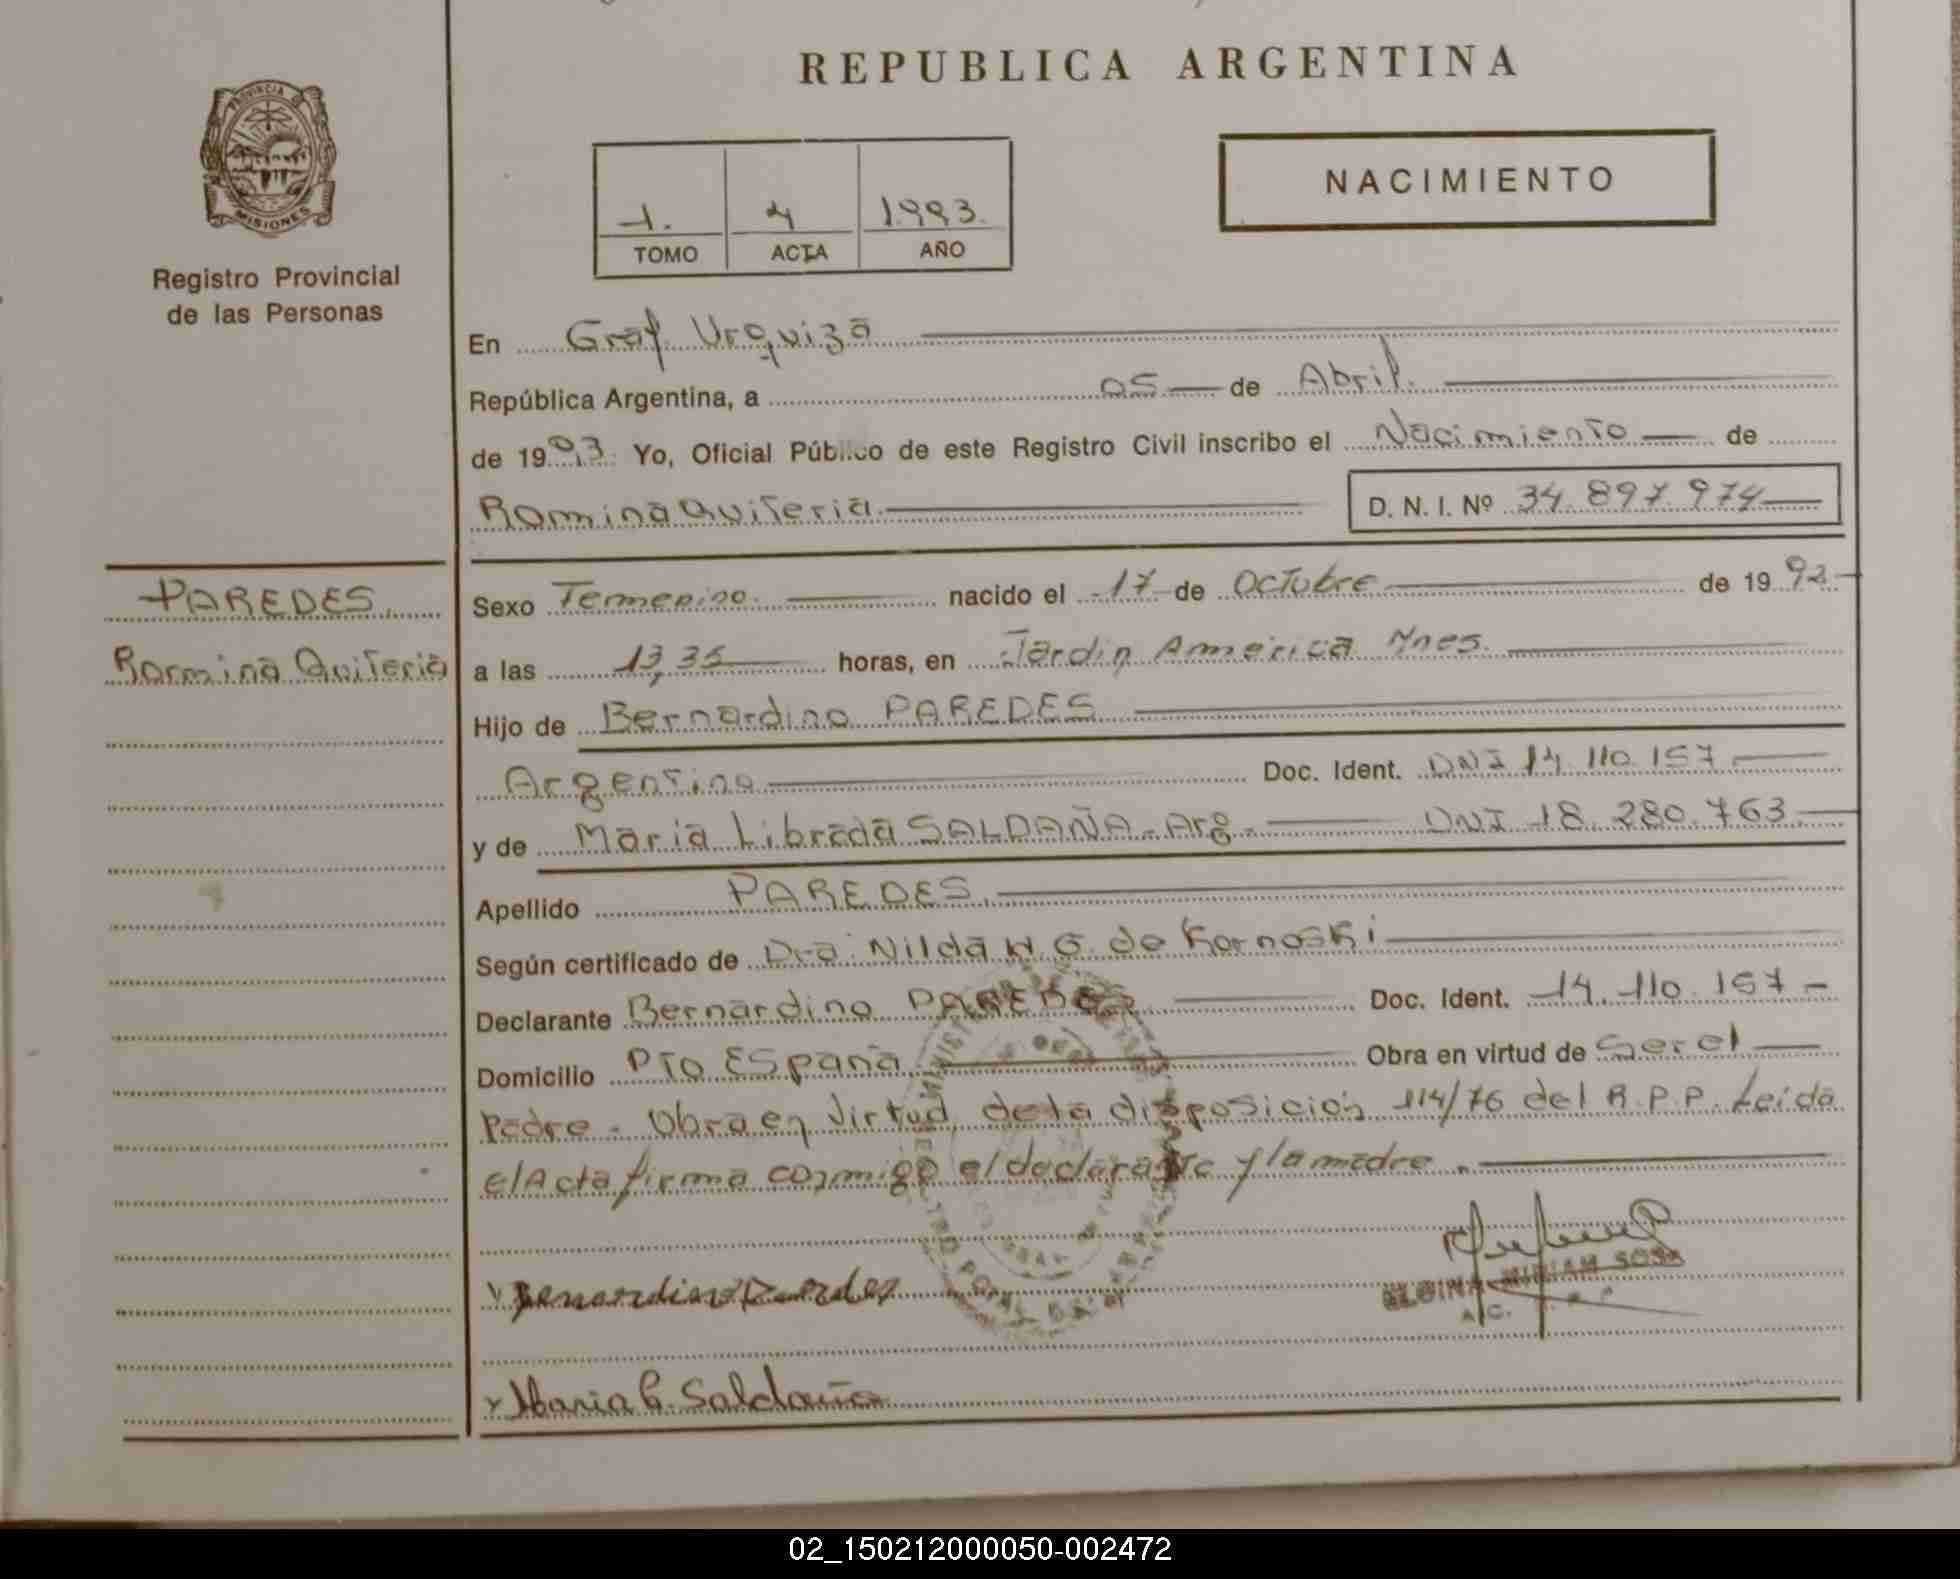 REPUBLICA ARGENTINA
PROVINCIA DE
MISIONES
Registro Provincial
de las Personas
1. 4 1.993.
TOMO ACTA AÑO
NACIMIENTO
En Gral. Urquiza
República Argentina, a 05 de Abril.
de 1993. Yo, Oficial Público de este Registro Civil inscribo el Nacimiento de
Romina Quiteria D. N. I. Nº 34.897.974
PAREDES
Romina Quiteria
Sexo Femenino. nacido el 17 de Octubre de 1992
a las 13,35 horas, en Jardin America Mnes.
Hijo de Bernardino PAREDES
Argentino Doc. Ident. DNI 14.110.157
y de Maria Librada SALDAÑA - Arg. DNI 18.280.763
Apellido PAREDES.
Según certificado de Dra. Nilda N. G. de Kornoski
Declarante Bernardino PAREDES Doc. Ident. 14.110.157
Domicilio Pto España Obra en virtud de Ser el
Padre - Obra en Virtud de la disposición 114/76 del R.P.P. Leída
el Acta firma conmigo el declarante y la madre.
Bernardino Paredes
MIRIAM SOSA
Maria L. Saldaña
02_150212000050-002472